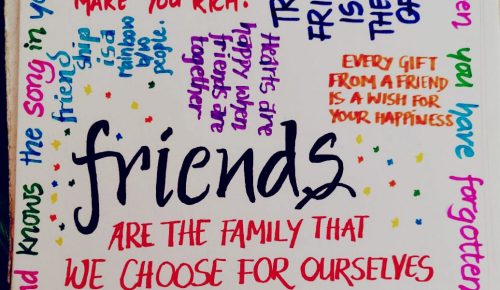 MAKE YOU RICH!
friend
ship
is a
rainbow
b/w
two
people.
Hearts are
happy when
friends are
together
EVERY GIFT
FROM A FRIEND
IS A WISH FOR
YOUR HAPPINESS
knows the song in
you have forgotten
friends
ARE THE FAMILY THAT
WE CHOOSE FOR OURSELVES